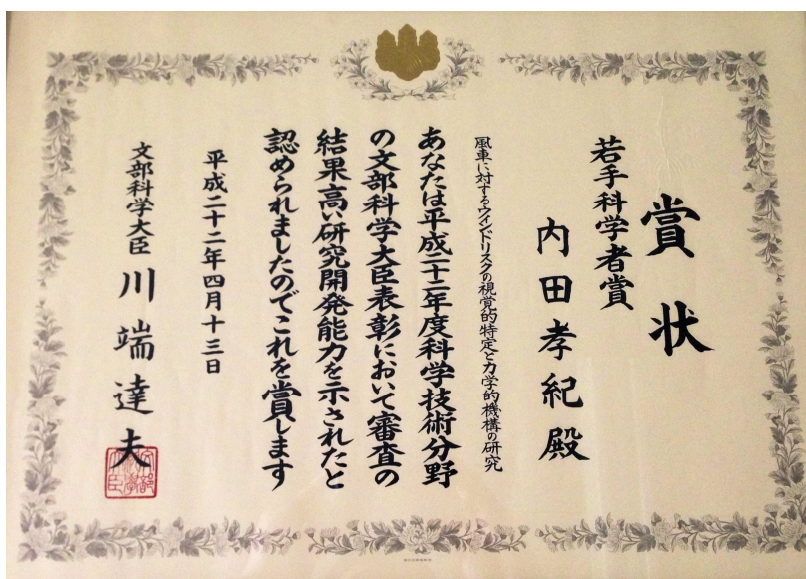 賞状
若手科学者賞
内田孝紀殿
風車に対するウインドリスクの視覚的特定と力学的機構の研究
あなたは平成二十二年度科学技術分野
の文部科学大臣表彰において審査の
結果高い研究開発能力を示されたと
認められましたのでこれを賞します
平成二十二年四月十三日
文部科学大臣 川端達夫